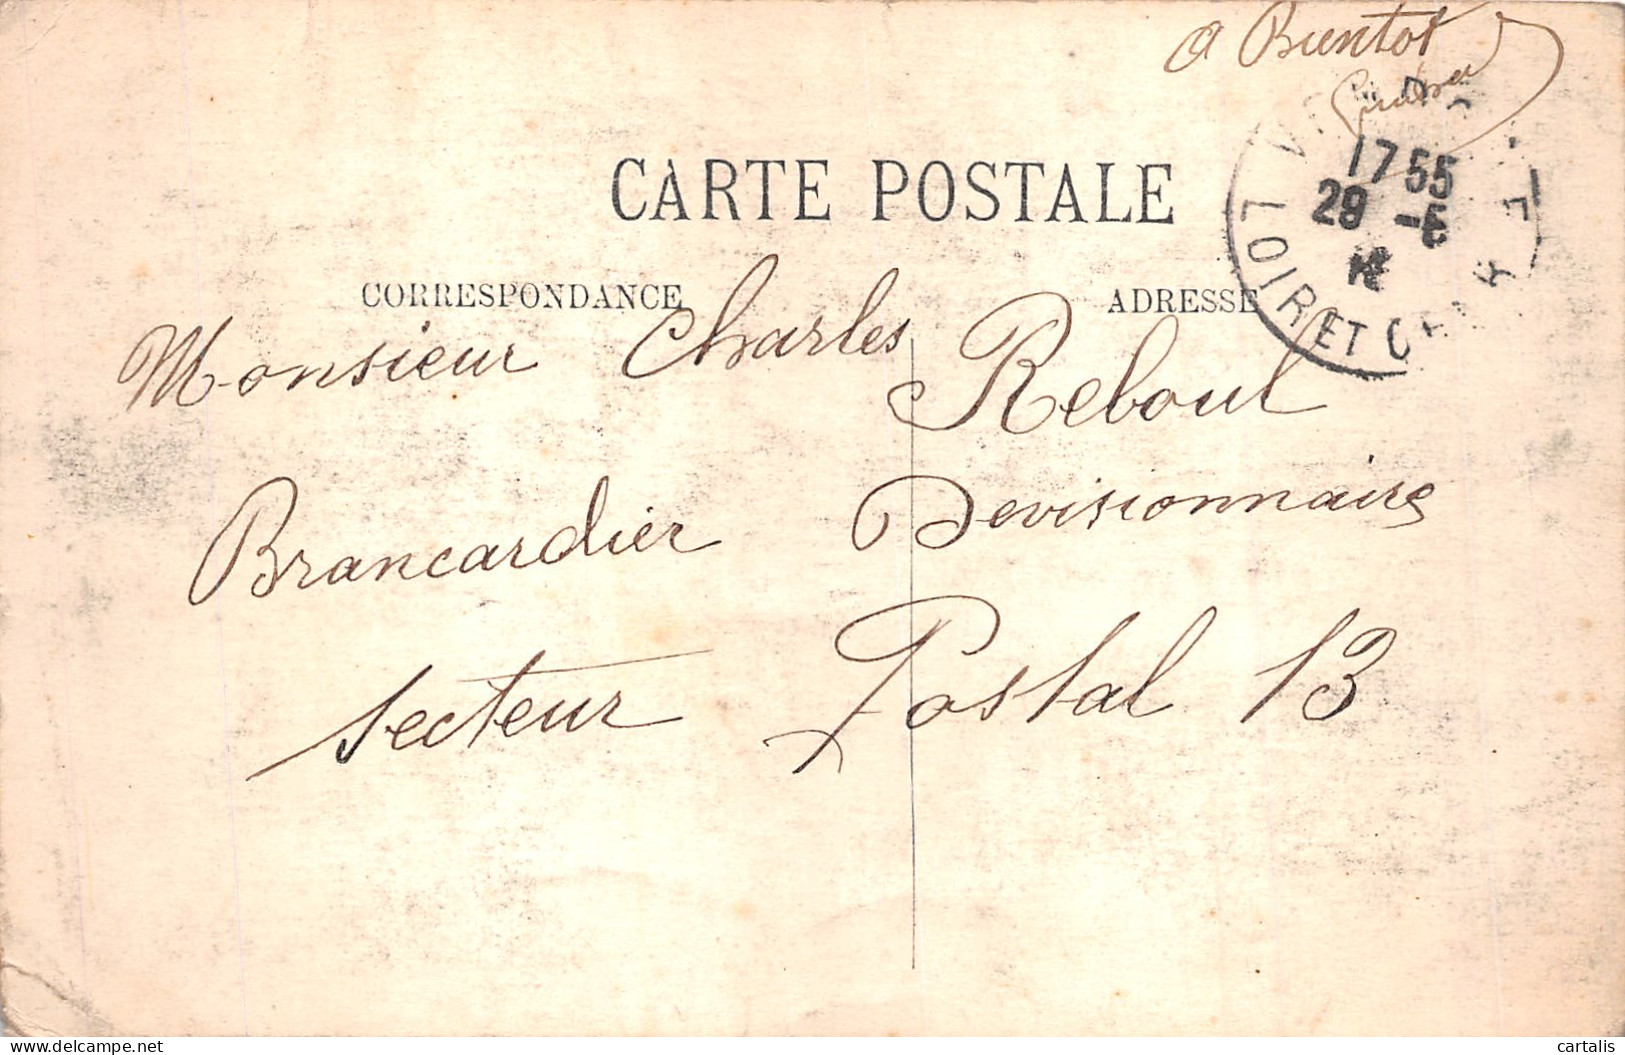 A Bientot
CARTE POSTALE
17 55
29 -6
LOIR ET CHER
CORRESPONDANCE
ADRESSE
Monsieur Charles Reboul
Brancardier Devisionnaire
Secteur Postal 13
delcampe.net
cartalis